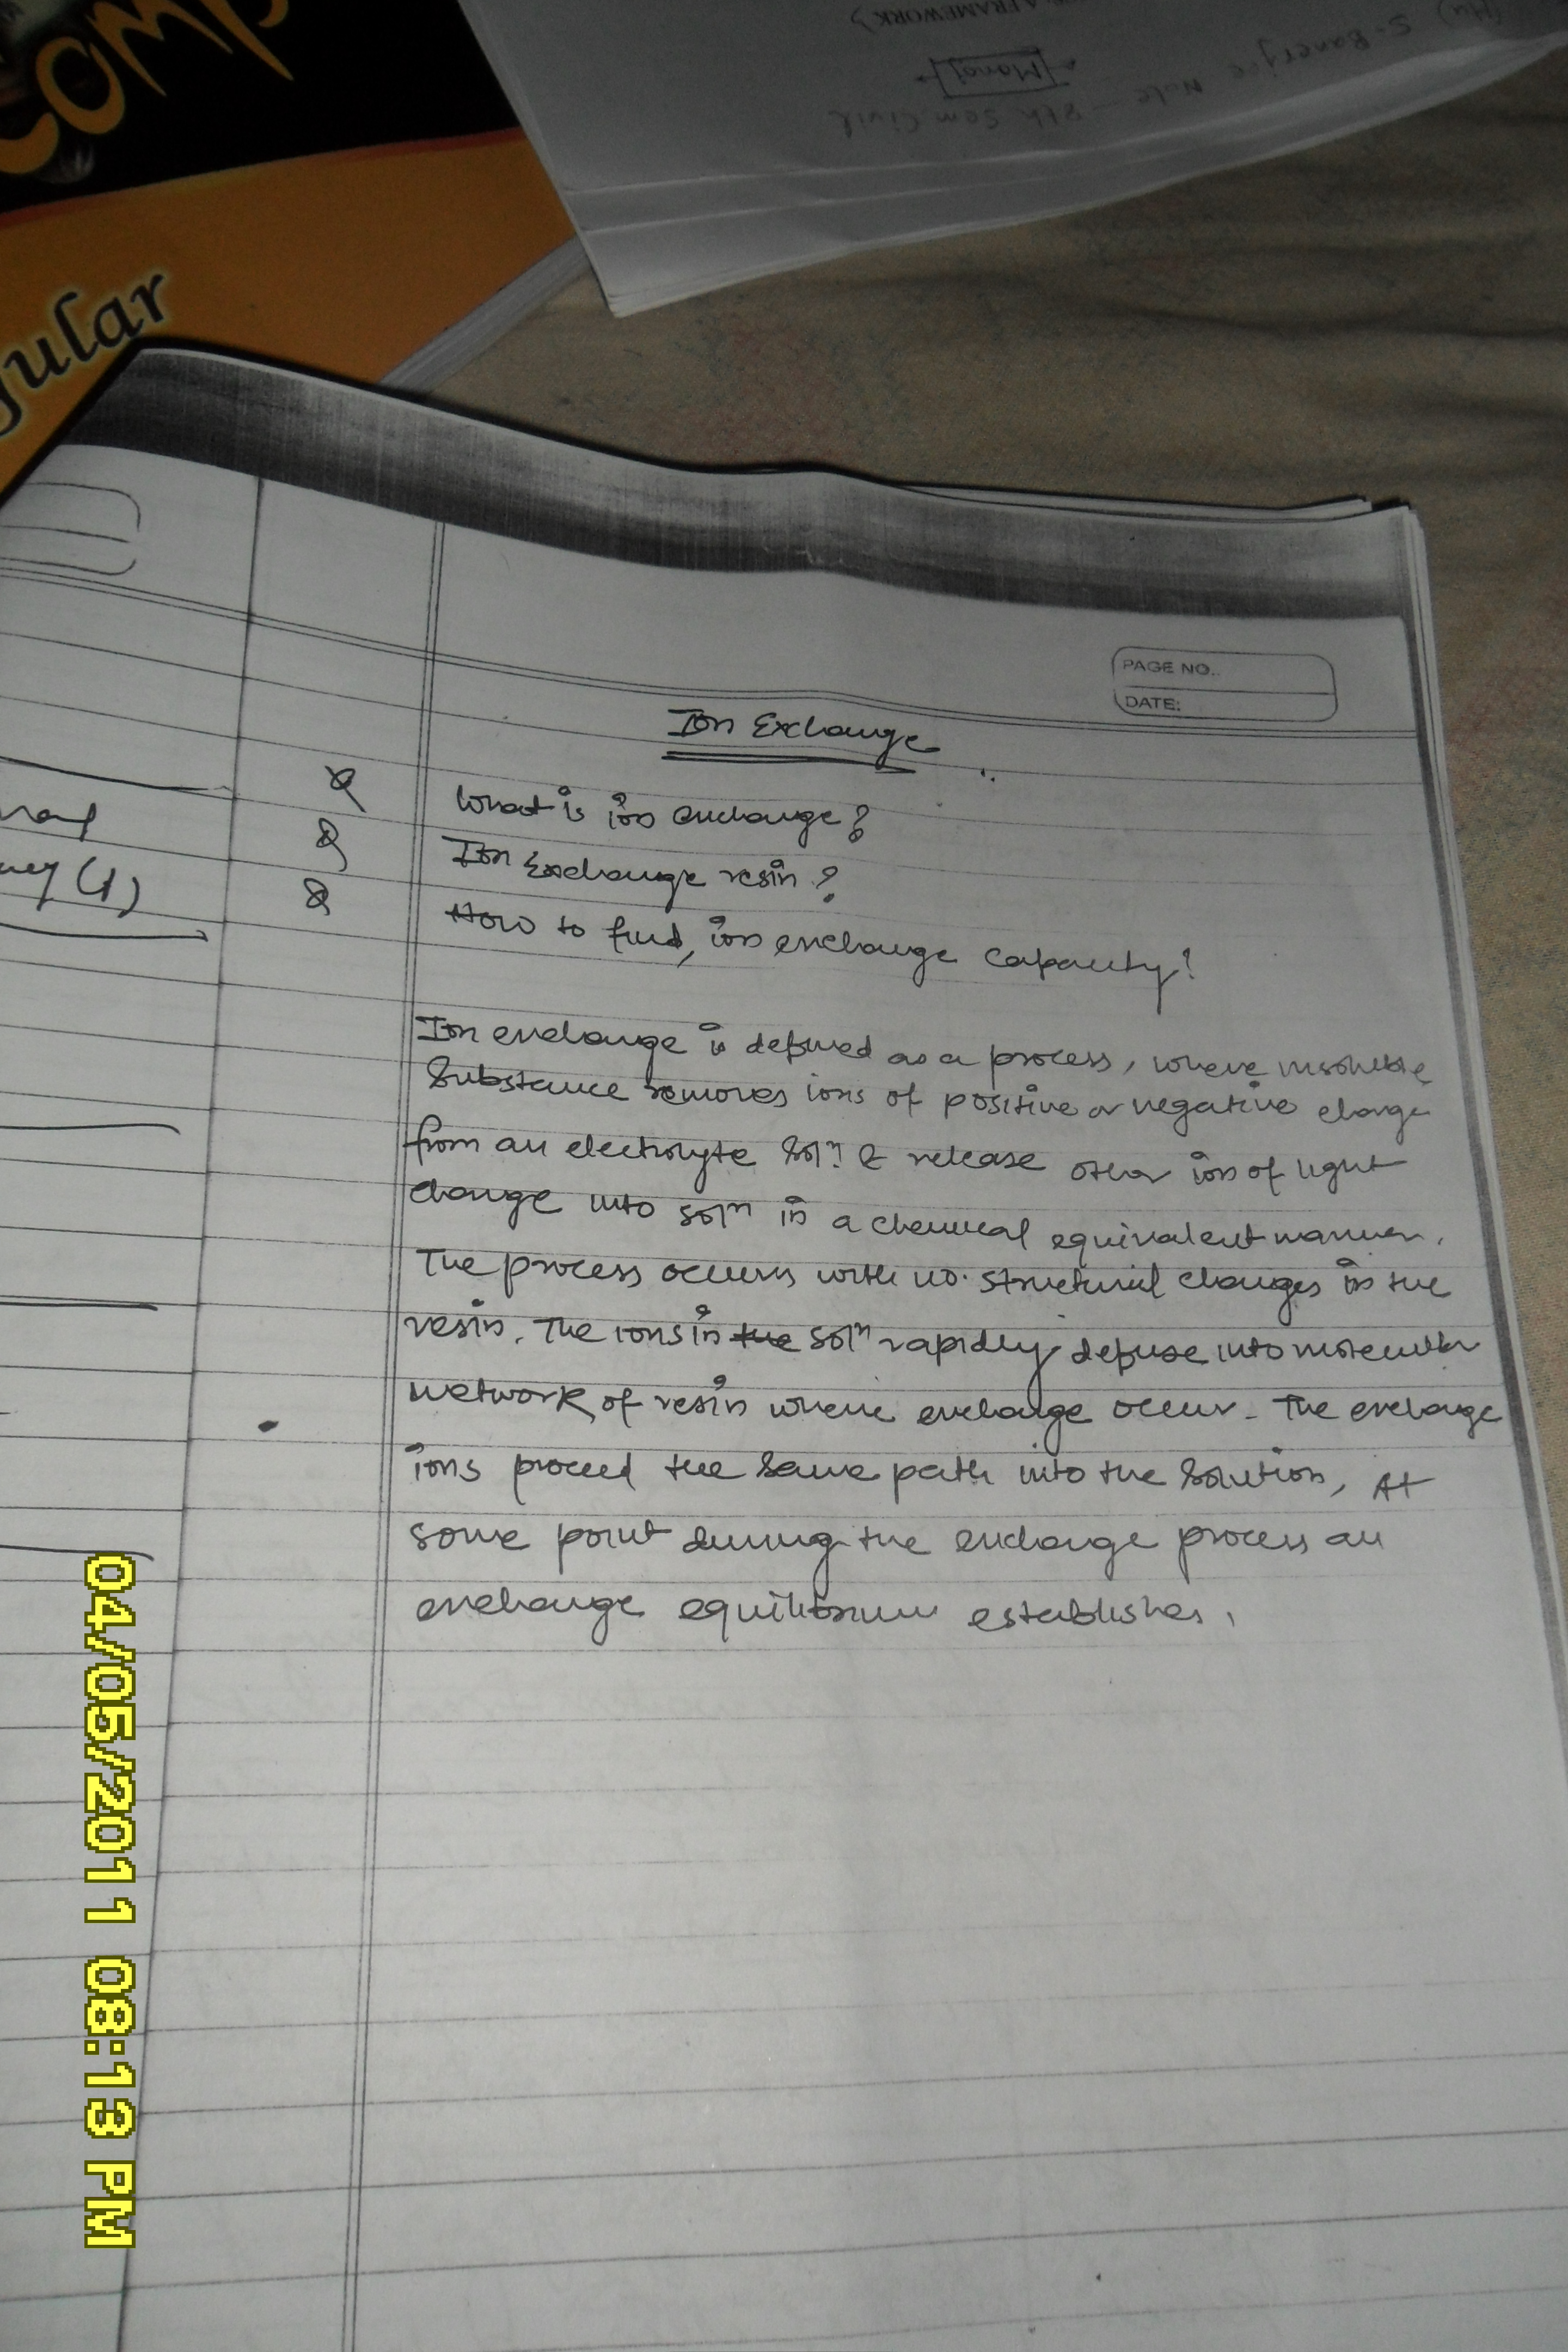 COMP
gular
A FRAMEWORK)
[Manoj]
S. Banerjee Note - 8th Sem Civil
PAGE NO..
DATE:
Ion Exchange
Q What is ion exchange?
Q Ion Exchange resin?
(1) Q How to find, ion exchange capacity?
Ion exchange is defined as a process, where insoluble
Substance removes ions of positive or negative charge
from an electrolyte Solⁿ. & release other ions of light
charge into solⁿ in a chemical equivalent manner.
The process occurs with no. structural changes in the
resin. The ions in the solⁿ rapidly defuse into molecular
network of resin where exchange occur. The exchange
ions proceed the same path into the solution, At
some point during the exchange process an
exchange equilibrium establishes.
04/05/2011 08:13 PM